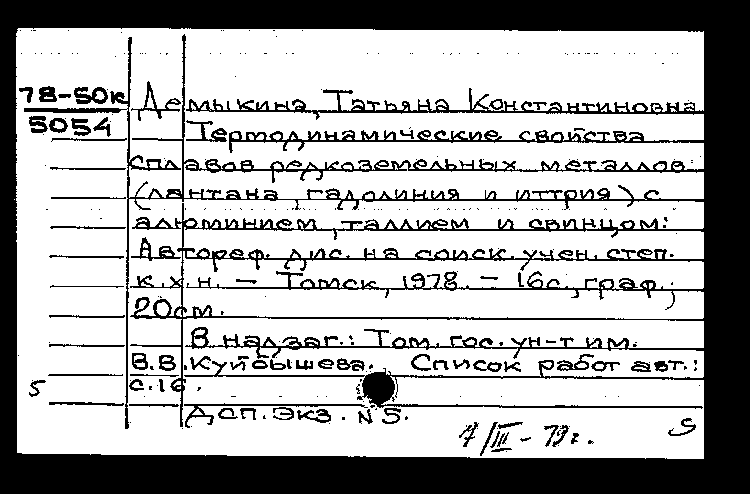 78-50к
5054
Демыкина, Татьяна Константиновна
Термодинамические свойства
сплавов редкоземельных металлов
(лантана, гадолиния и иттрия) с
алюминием, таллием и свинцом:
Автореф. дис. на соиск. учен. степ.
к.х.н. — Томск, 1978. — 16с., граф.;
20см.
В надзаг.: Том. гос. ун-т им.
В.В. Куйбышева. Список работ авт.:
с.16.
5
Дсп. экз. N 5.
7/III - 79г.